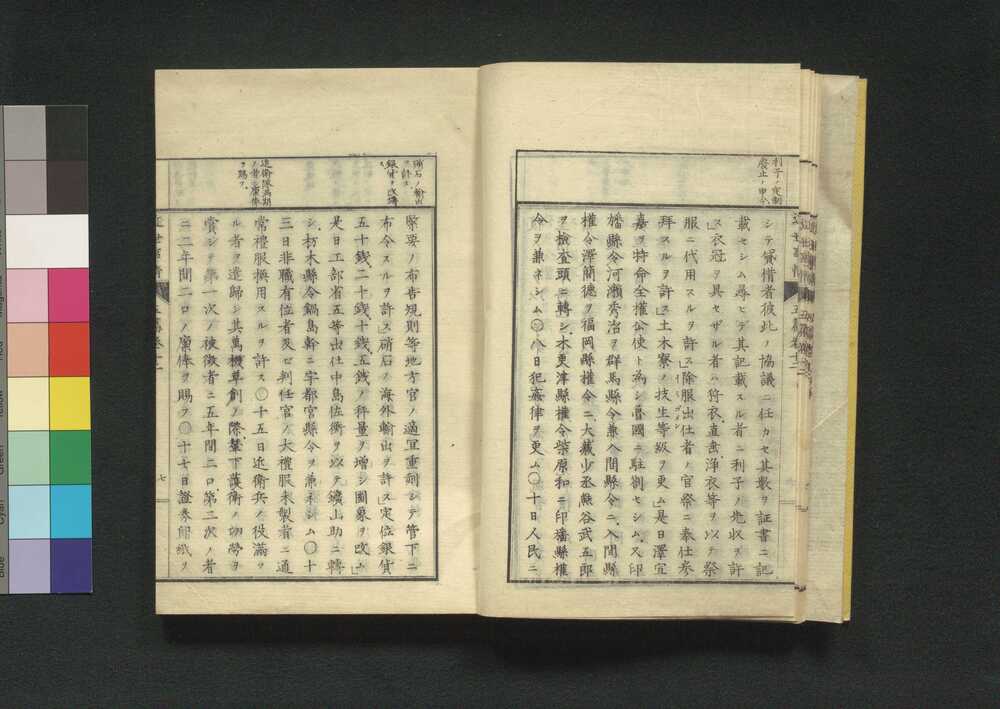 利子ノ定制
廢止ノ申令
シテ貸借者彼此ノ協議ニ任カセ其數ヲ証書ニ記
載セシム尋ヒデ其記載スル者ニ利子ノ先收ヲ許
ス」衣冠ヲ具セザル者ハ狩衣、直垂、淨衣等ヲ以テ祭
服ニ代用スルヲ許ス」除服出仕者ノ官祭ニ奉仕參
拜スルヲ許ス」土木寮ノ技生等級ヲ更ム」是日澤宣
嘉ヲ特命全權公使ト為シ魯國ニ駐劄セシム、又印
旛縣令河瀬秀治ヲ群馬縣令兼入間縣令ニ、入間縣
權令澤簡德ヲ福岡縣權令ニ、大藏少丞熊谷武五郎
ヲ檢査頭ニ轉シ、木更津縣權令柴原和ニ印旛縣權
令ヲ兼ネシム〇八日犯姦律ヲ更ム〇十日人民ニ
硝石ノ輸出
ヲ許ス
銀貨ヲ改鑄
ス
近衛隊滿期
ノ者ニ廩俸
ヲ賜フ
緊要ノ布告規則等地方官ノ適宜重刻シテ管下ニ
布令スルヲ許ス」硝石ノ海外輸出ヲ許ス」定位銀貨
五十錢、二十錢、十錢、五錢ノ秤量ヲ增シ圖象ヲ改ム」
是日工部省五等出仕中島佐衡ヲ以テ鑛山助ニ轉
シ、栃木縣令鍋島幹ニ宇都宮縣令ヲ兼ネシム〇十
三日非職有位者及ビ判任官ノ大禮服未製者ニ通
常禮服換用スルヲ許ス〇十五日近衛兵ノ役滿ツ
ル者ヲ遣歸シ其萬機草創ノ際輦下護衛ノ功勞ヲ
賞シテ第一次ノ被徵者ニ五年間二口、第二次ノ者
ニ二年間二口ノ廩俸ヲ賜フ〇十七日證券印紙ヲ
七